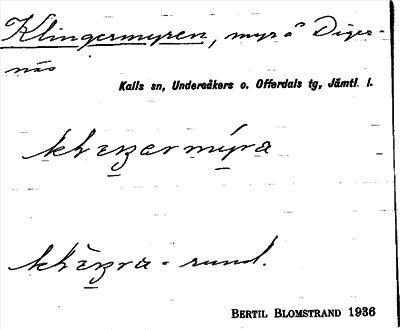 Klingermyren, myr å Diger-
näs
Kalls sn, Undersåkers o. Offerdals tg, Jämtl. l.
rund.
BERTIL BLOMSTRAND 1936